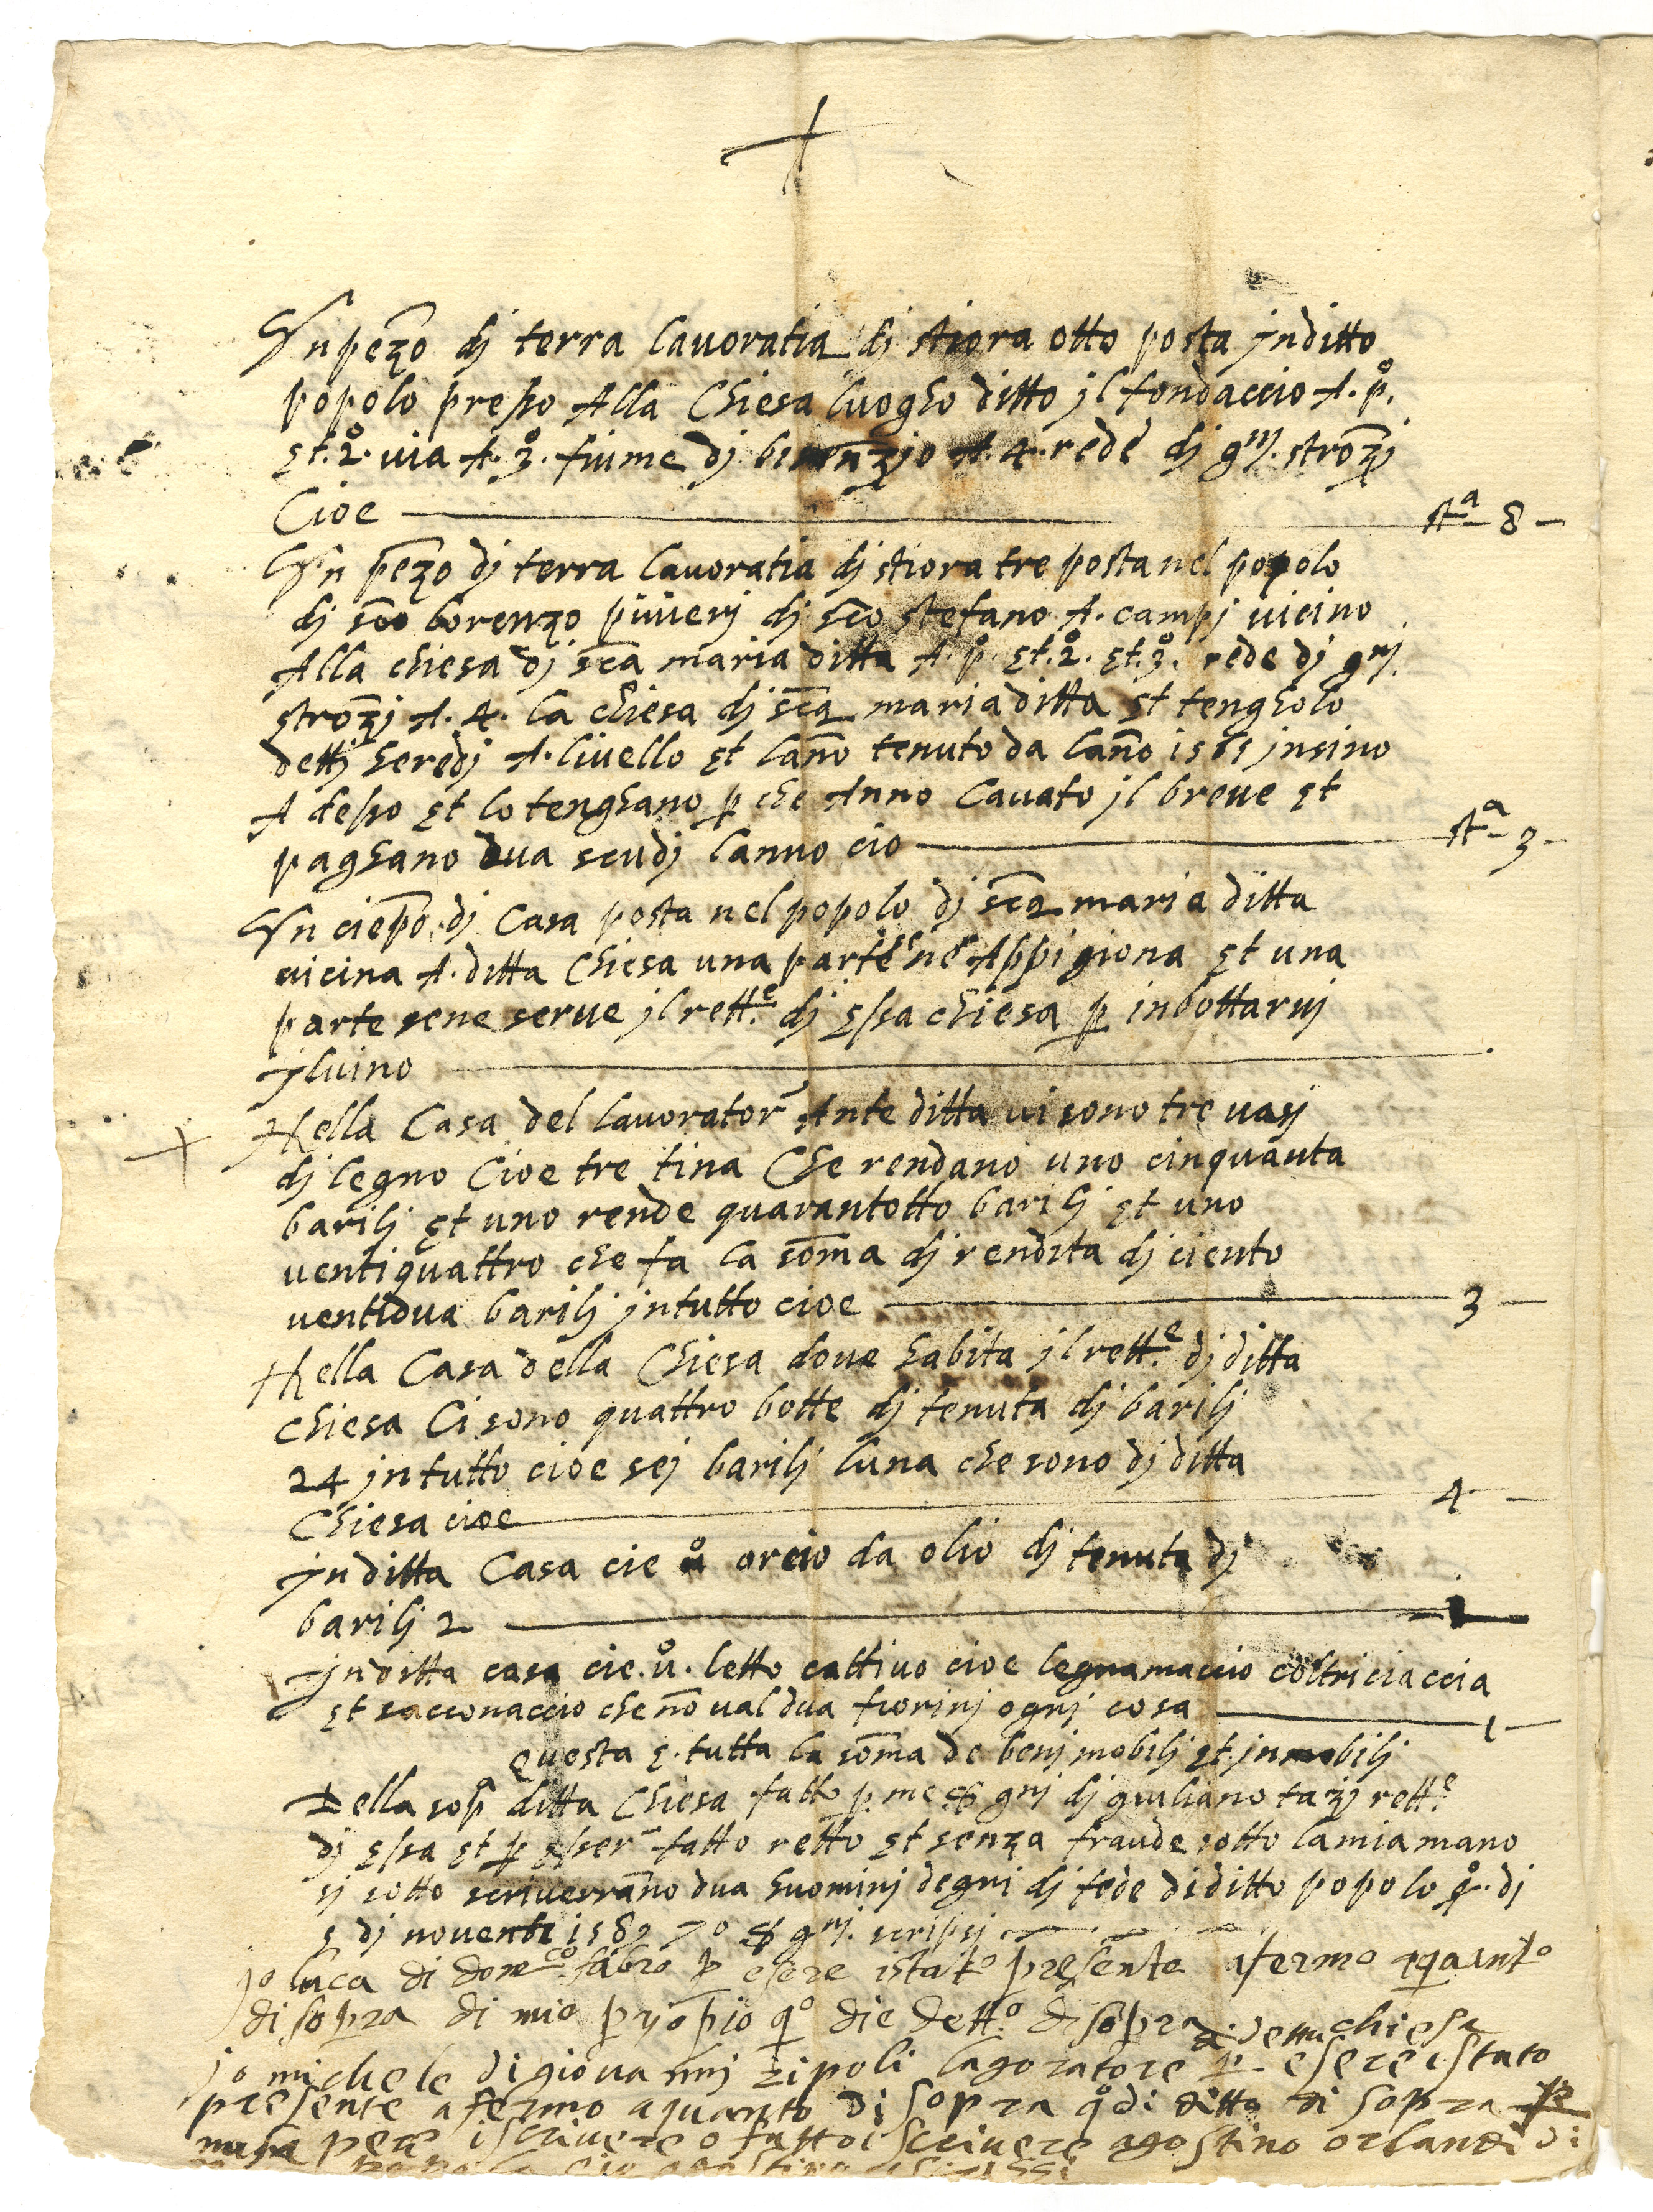 Un pezo di terra lavoratia di stiora otto posta in ditto
popolo presso Alla Chiesa luogho ditto il fondaccio A. po.
et. 2o. via A. 3o. fiume di bisenzio A. 4. rede di gni. strozi
Cioe sta 8
Un pezo di terra lavoratia di stiora tre posta nel popolo
di sco lorenzo pivieri di sco stefano A. campi vicino
Alla chiesa di sca maria ditta A. po. et. 2o. et. 3o. rede di gni.
strozi A. 4. la chiesa di sca maria ditta et tengholo
detti heredi A. livello et lano tenuto da lano insino
A desso et lo tenghano p che Anno Cavato il breve et
paghano dua scudi lanno cio sta 3
Un ciepo di Casa posta nel popolo di sca maria ditta
vicina A. ditta Chiesa una parte ne Appigiona et una
parte sene serve il rette di Essa chiesa p inbottarvi
il vino
Nella Casa del lavorator Ante ditta vi sono tre vasi
di legno Cioe tre tina Che rendano uno cinquanta
barili et uno rende quarantotto barili et uno
ventiquattro che fa la soma di rendita di ciento
ventidua barili in tutto cioe 3
Nella Casa della Chiesa dove habita il rette di ditta
chiesa Ci sono quattro botte di tenuta di barili
24 in tutto cioe sei barili luna che sono di ditta
Chiesa cioe 4
in ditta Casa cie uo orcio da olio di tenuta di
barili 2 1
in ditta casa cie. uo. letto cattivo cioe legnamaccio coltriciaccia
et sacconaccio che no val dua fiorini ogni cosa 1
questa e. tutta la soma de beni mobili et inmobili
Della sop ditta Chiesa fatto p me gni di giuliano tazi rette
di Essa et p Esser fatto retto et senza fraude sotto la mia mano
si sotto scriverrano dua huomini degni di fede di ditto popolo qo. di
5 di novenbr Io gni. scripsi
io luca di domco fabro p esere istato presente afermo quanto
di sopra di mio propio qo die detto di sopra
io michele di giovanni zipoli lagoratore di detta chiesa p esere istato
presente afermo a quanto di sopra qo di ditto di sopra
iscrivere o fatto iscrivere agostino orlandi di